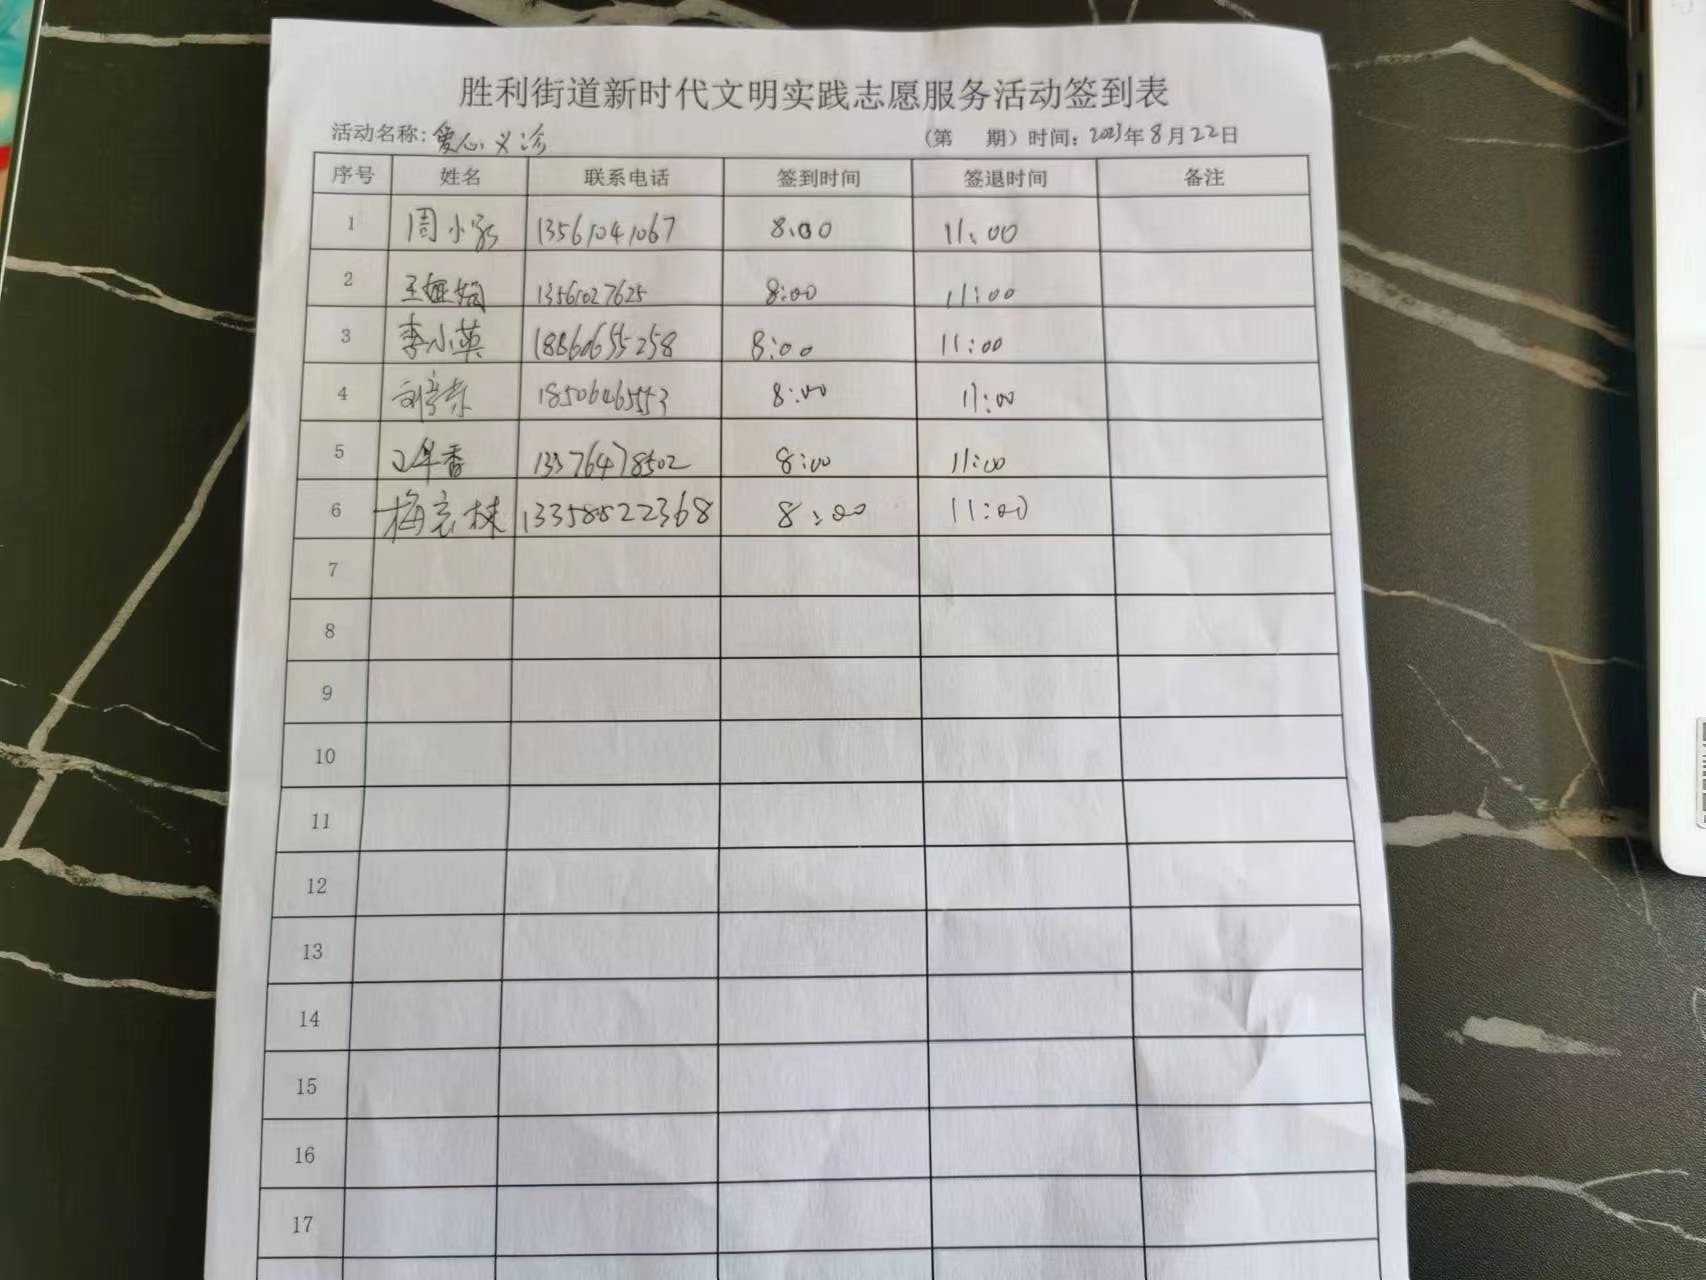 胜利街道新时代文明实践志愿服务活动签到表
活动名称：爱心义诊 （第 期）时间：2023年8月22日
序号 姓名 联系电话 签到时间 签退时间 备注
1 周小 13561041067 8:00 11:00
2 王娅娟 13561027625 8:00 11:00
3 李小英 18860655258 8:00 11:00
4 刘彦東 18506465553 8:00 11:00
5 香 13376478502 8:00 11:00
6 梅 13358822368 8:00 11:00
7
8
9
10
11
12
13
14
15
16
17